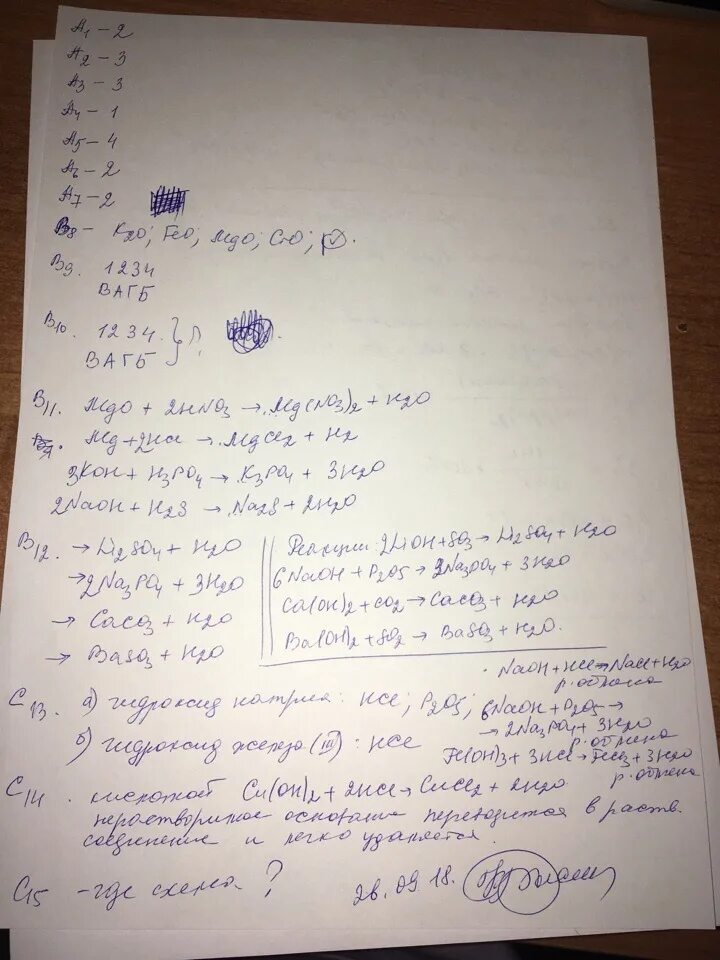 A1 – 2
A2 – 3
A3 – 3
A4 – 1
A5 – 4
A6 – 2
A7 – 2
B8 – K2O; FeO; MgO; CrO;
B9. 1 2 3 4
В А Г Б
B10. 1 2 3 4
В А Г Б
B11. MgO + 2HNO3 → Mg(NO3)2 + H2O
Mg + 2HCl → MgCl2 + H2
3KOH + H3PO4 → K3PO4 + 3H2O
2NaOH + H2S → Na2S + 2H2O
B12. → Li2SO4 + H2O
→ 2Na3PO4 + 3H2O
→ CaCO3 + H2O
→ BaSO3 + H2O
Реакции: 2LiOH + SO3 → Li2SO4 + H2O
6NaOH + P2O5 → 2Na3PO4 + 3H2O
Ca(OH)2 + CO2 → CaCO3 + H2O
Ba(OH)2 + SO2 → BaSO3 + H2O.
C13. а) гидроксид натрия: HCl; P2O5;
NaOH + HCl → NaCl + H2O
р. обмена
6NaOH + P2O5 →
→ 2Na3PO4 + 3H2O
р. обмена
б) гидроксид железа (III): HCl
Fe(OH)3 + 3HCl → FeCl3 + 3H2O
р. обмена
C14. кислотой Cu(OH)2 + 2HCl → CuCl2 + 2H2O
нерастворимое основание переводится в раств.
соединение и легко удаляется.
C15 – где схема ?
26.09.18.